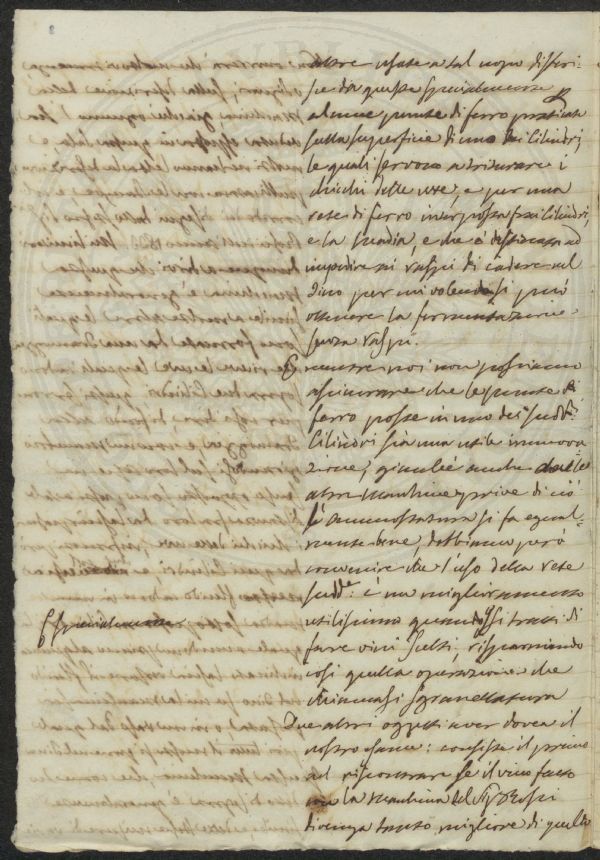 altre usate a tal uopo differi-
sce da queste specialmente per
alcune punte di ferro praticate
sulla superficie di uno dei Cilindri,
le quali servono a triturare i
chicchi delle uve, e per una
rete di ferro interposta fra i Cilindri,
e la madia, e che è destinata ad
impedire ai raspi di cadere nel
tino per cui volendosi si può
ottenere la fermentazione
senza raspi.
E mentre noi non possiamo
assicurare che le punte di
ferro poste in uno dei sudd.i
Cilindri sia una utile innova-
zione, giacchè anche colle
altre macchine prive di ciò
l'ammostatura si fa equal-
mente bene, dobbiamo però
convenire che l'uso della rete
sudd.a è un miglioramento
utilissimo quando si tratti di
specialmente
fare vini scelti, risparmiando
così quella operazione che
chiamasi sgranellatura
Due altri oggetti aver dovea il
nostro esame: consiste il primo
nel riscontrare se il vino fatto
con la macchina del Sig.
divenga tanto migliore di quello